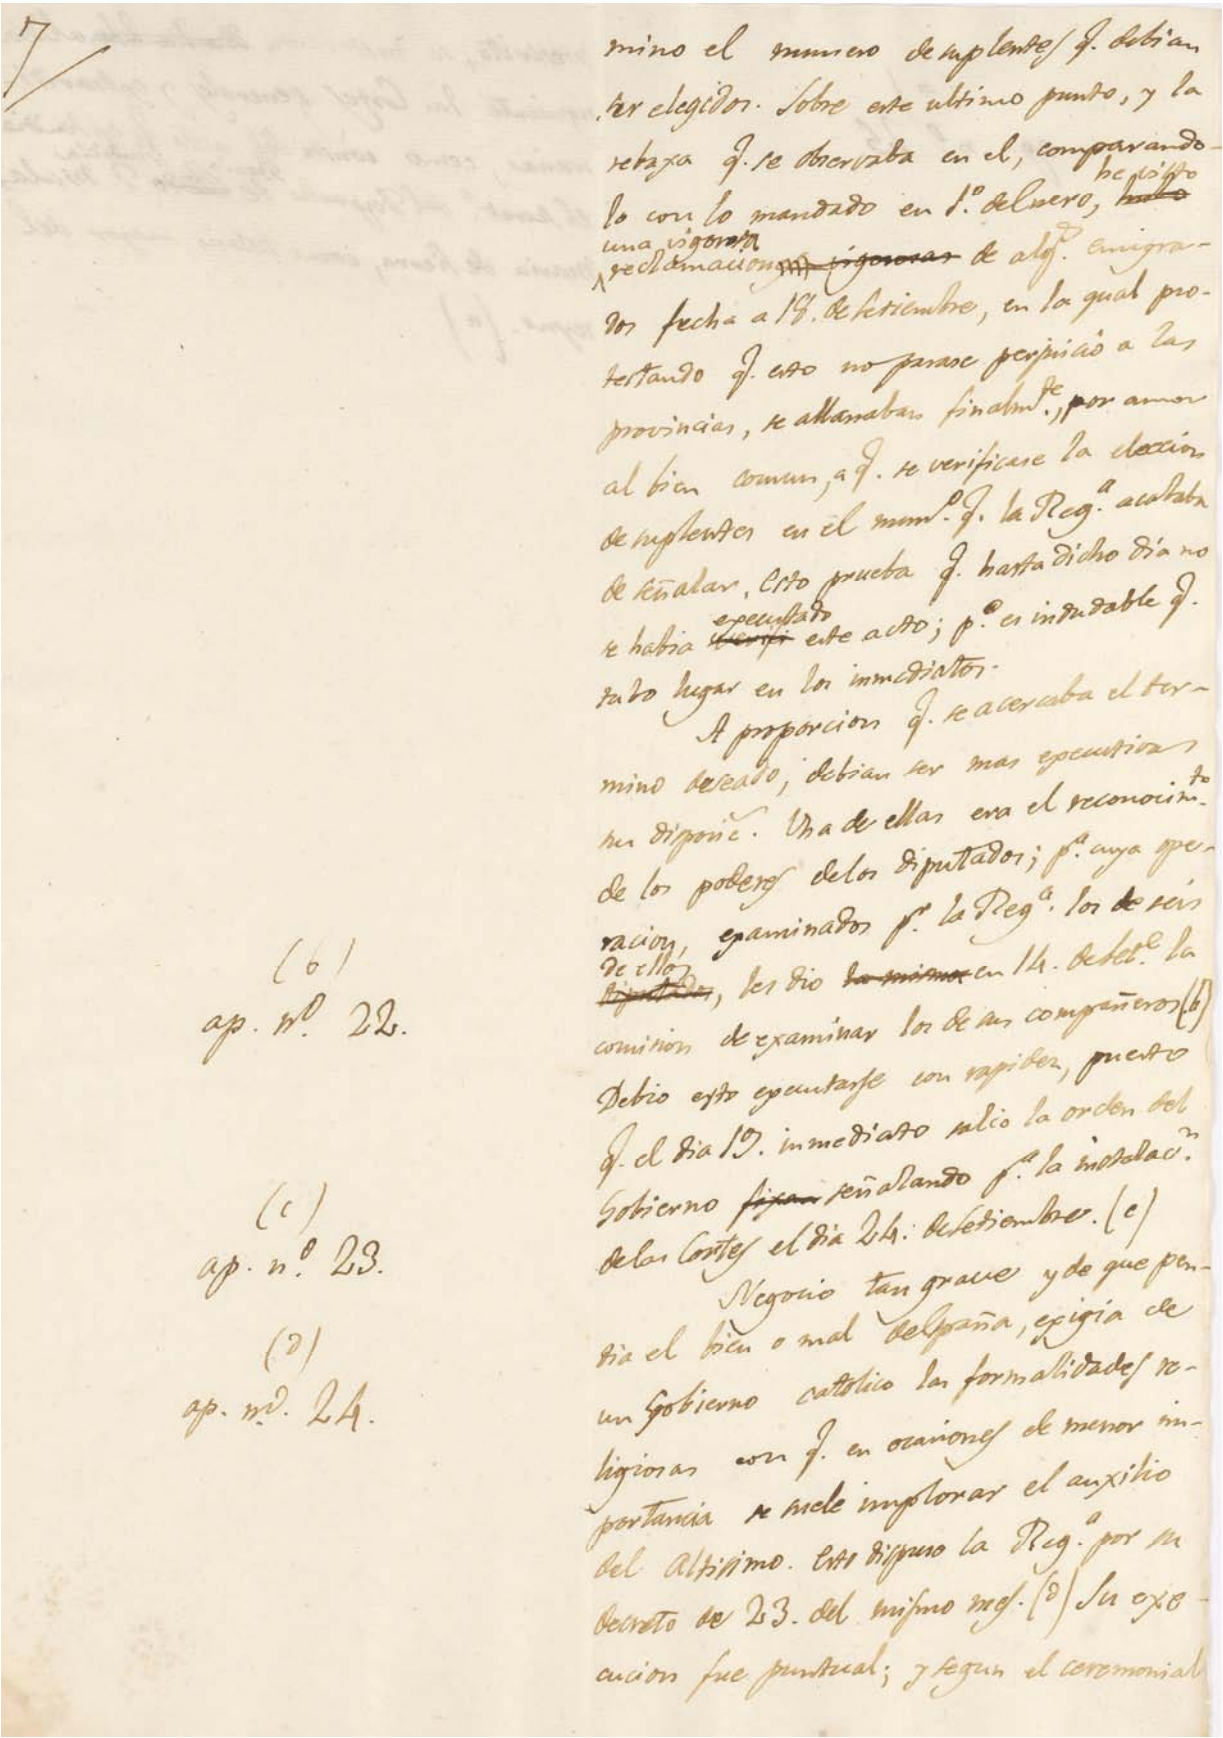 7/
mino el numero de suplentes q. debian
ser elegidos. Sobre este ultimo punto, y la
rebaxa q. se observaba en el, comparando-
he visto
lo con lo mandado en 1.º de Enero, hubo
una vigorosa
reclamaciones vigorosas de alg.s emigra-
dos fecha a 18. de Setiembre, en la qual pro-
testando q. esto no parase perjuicio a las
provincias, se allanaban finalm.te, por amor
al bien comun, a q. se verificase la eleccion
de suplentes en el num.o q. la Reg.a acababa
de señalar. Esto prueba q. hasta dicho dia no
executado
se habia verifi este acto; p.o es indudable q.
tubo lugar en los inmediatos.
A proporcion q. se acercaba el ter-
mino deseado, debian ser mas executivas
sus disposic. Una de ellas era el reconocim.to
de los poderes de los diputados; p.a cuya ope-
racion, examinados p.r la Reg.a los de seis
de ellos
diputados, les dio la misma en 14. de Set.e la
comision de examinar los de sus compañeros (b)
Debio esto executarse con rapidez, puesto
q. el dia 19. inmediato salio la orden del
Gobierno fixan señalando p.a la instalac.n
de las Cortes el dia 24. de Setiembre. (c)
Negocio tan grave y de que pen-
dia el bien o mal de España, exigia de
un Gobierno catolico las formalidades re-
ligiosas con q. en ocasiones de menor im-
portancia se suele implorar el auxilio
del Altisimo. Esto dispuso la Reg.a por su
decreto de 23. del mismo mes. (d) Su exe-
cucion fue puntual; y segun el ceremonial
(b)
ap. n.º 22.
(c)
ap. n.º 23.
(d)
ap. n.º 24.